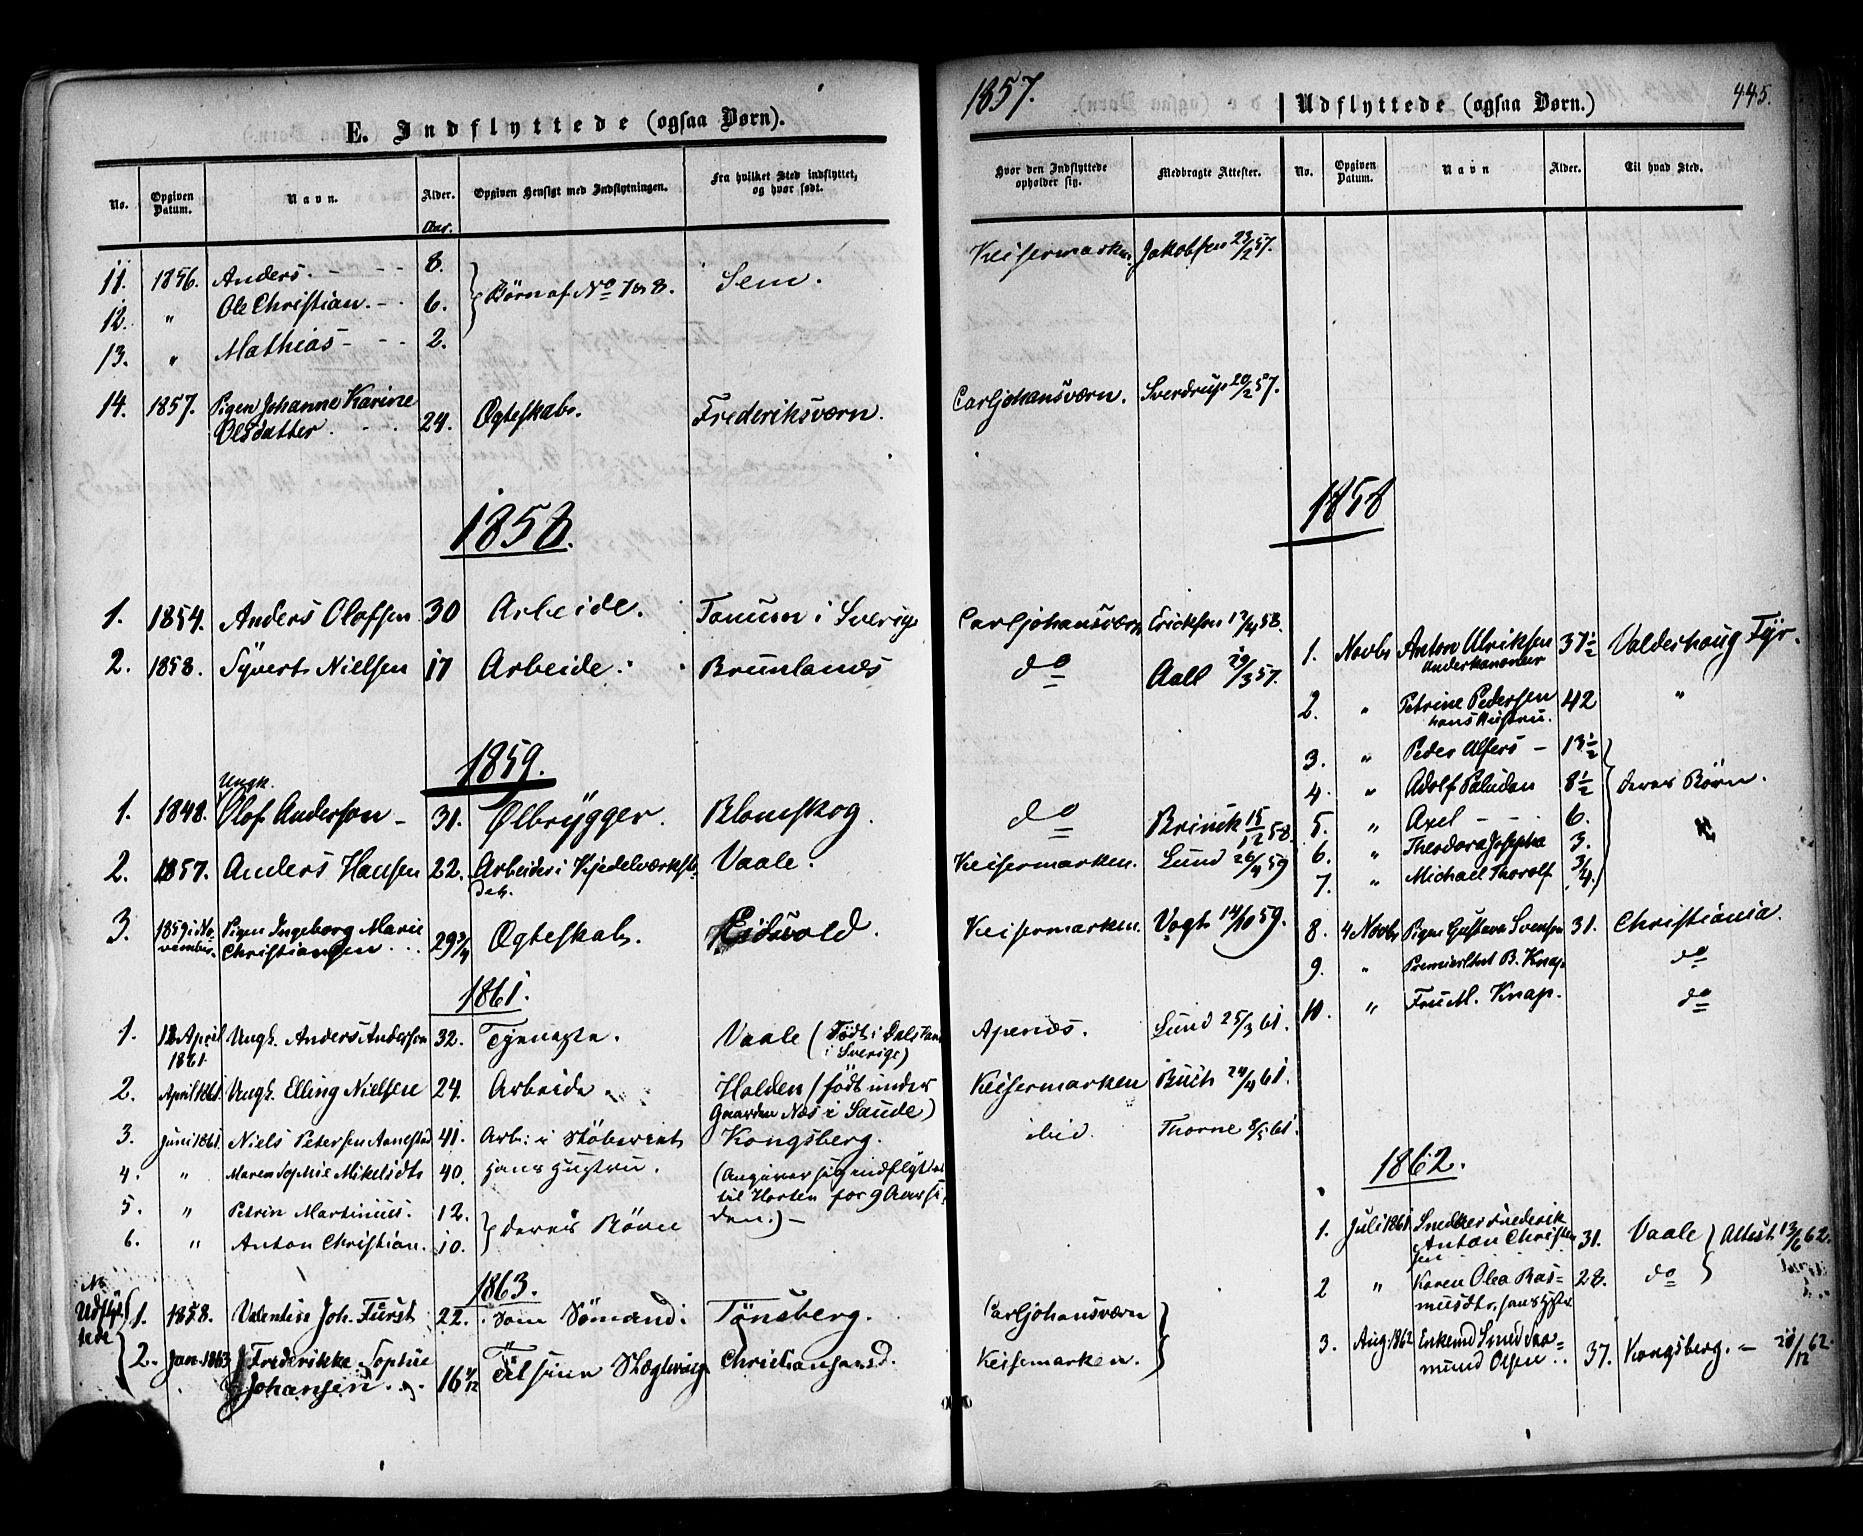 E. Indflyttede (ogsaa Børn).
No.
Opgiven Datum.
Navn.
Alder.
Opgiven Hensigt med Indflytningen.
Fra hvilket Sted indflyttet, og hvor født.
Aar.
11. 1856. Anders. - - - 8.
12. " Ole Christian. - - 6. } Børn af No 7 & 8. Sem.
13. " Mathias - - - 2.
14. 1857. Pigen Johanne Karine
Olsdatter. - - - 24. Ægteskab. Frederiksværn.
1858.
1. 1854. Anders Olofsen 30 Arbeide. Tanum i Sverige
2. 1858. Syvert Nielsen 17 Arbeide. Brunlanæs
1859.
Ungk.
1. 1848. Olof Anderson - 31. Ølbrygger. Blomskog.
2. 1857. Anders Hansen 22. Arbeider i Kjedelværkst. Vaale.
3. 1859 i No- Pigen Ingeborg Marie
vember. Christiansen 29 3/4 Ægteskab. Eidsvold.
1861.
1. 12 April Ungk. Anders Anderson 32. Tjeneste. Vaale (Født i Dalsland
1861 i Sverige)
2. April 1861. Ungk. Elling Nielsen 24. Arbeide. Holden (født under
Gaarden Næs i Saude)
3. Juni 1861. Niels Petersen Aanestad 41. Arb: i Støberiet Kongsberg.
4. " Maren Sophie Mikelsdtr 40. Hans Hustru. (Angiver sig indflyttet
5. " Petrin Martinius. 12. til Horten for 9 Aar si-
6. " Anton Christian. 10. } deres Børn den.) -
1863.
Udflyttede
1. 1858. Valentin Joh. Fürst 22. Som Sømand. Tønsberg.
2. Jan. 1863 Frederikke Sophie
Johansen. 16 Christiansand.
1857.
Udflyttede (ogsaa Børn.)
445.
Hvor den Indflyttede opholder sig.
Medbragte Attester.
No.
Opgiven Datum.
Navn
Alder.
Til hvad Sted.
Keisermarken. Jakobsen 23/2 57.
Carljohansværn. Sverdrup 20/2 57.
1858
Carljohansværn Erickson 17/4 58.
do Aall 29/3 57.
1. Novbr Anton Ulriksen 37 1/2 Valderhoug Fyr.
Underkanoneer
2. " Petrine Pedersen 42 "
hans Hustru.
3. " Peder Alfers - 13 1/2
4. " Adolf Paludan 8 1/2 } deres Børn.
5. " Axel - - 6.
6. " Theodora Josepha 3.
7. " Michael Thorolf 3/4.
do Brinck 15/12 58.
Keisermarken. Lund 26/4 59
Keisermarken. Vogt 14/10 59.
8. 4 Novbr Pigen Gustava Svensen 31. Christiania.
9. " Premierltnt B. Knap do
10. " Fru M. Knap. do
Apenæs. Lund 25/3 61.
Keisermarken Buch 24/4 61.
ibid. Thorne 8/5 61.
1862.
1. Juli 1861 Snedker Frederik
Anton Christen
sen 31. Vaale } Attest. 13/6 62.
2 " Karen Olea Ras-
musdtr, hans Hustru 28. do
3. Aug. 1862 Enkemd Smed Aa-
mund Olsen 37. Kongsberg. - 20/12 62.
Carljohansværn
Keisermarken.